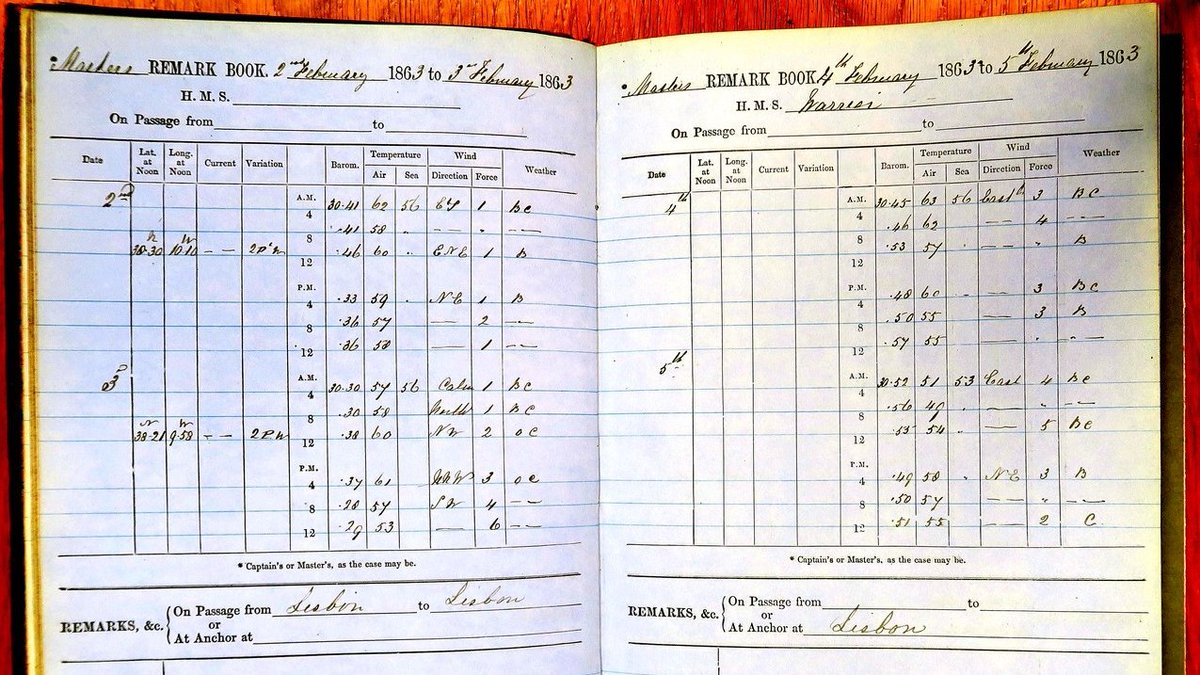 * Masters REMARK BOOK. 2nd February 1863 to 3rd February 1863
H. M. S.
On Passage from to
Date Lat. at Noon Long. at Noon Current Variation Barom. Temperature Air Sea Wind Direction Force Weather
2nd A.M. 4 30.41 62 56 1 B C
8 .41 58 " — " — —
N W
38.30 10.10 — — 12 .46 60 " ENE 1 B
P.M. 4 .33 59 " NE 1 B
8 .36 57 — 2 — —
12 .36 58 — 1 — —
3d A.M. 4 30.30 57 56 Calm 1 B C
8 .30 58 North 1 B C
N W
38.21 9.58 — — 2 P W 12 .38 60 NW 2 O C
P.M. 4 .37 61 3 O C
8 .28 57 SW 4 — —
12 .29 53 — 6 — —
* Captain's or Master's, as the case may be.
REMARKS, &c. { On Passage from Lisbon to Lisbon
or
At Anchor at
* Masters REMARK BOOK 4th February 1863 to 5th February 1863
H. M. S. Warrior
On Passage from to
Date Lat. at Noon Long. at Noon Current Variation Barom. Temperature Air Sea Wind Direction Force Weather
4th A.M. 4 30.45 63 56 East 3 B C
8 .46 62 — — 4 — —
12 .53 57 — — " B
P.M. 4 .48 60 " — — 3 B C
8 .50 55 — 3 B
12 .57 55 — " — —
5th A.M. 4 30.52 51 53 East 4 B C
8 .56 49 " — " — —
12 .53 54 " — 5 B C
P.M. 4 .49 58 " NE 3 B
8 .50 57 — " — —
12 .51 55 — 2 C
* Captain's or Master's, as the case may be.
REMARKS, &c. { On Passage from to
or
At Anchor at Lisbon